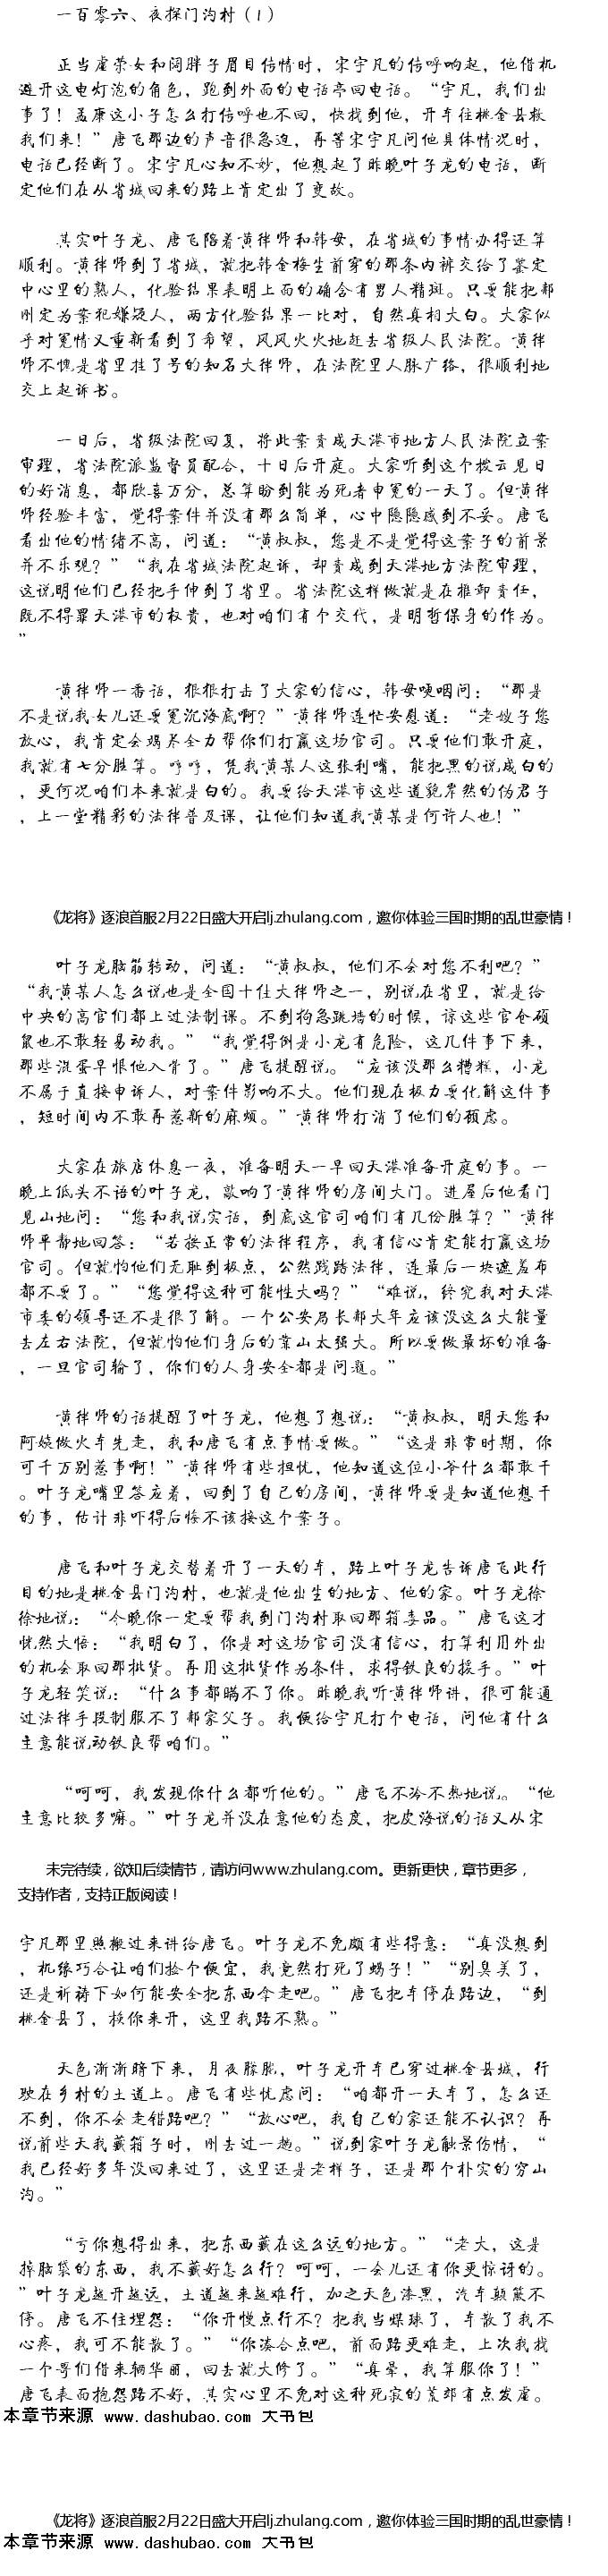 一百零六、夜探门沟村（1）
正当虚荣女和阔胖子眉目传情时，宋宇凡的传呼响起，他借机
避开这电灯泡的角色，跑到外面的电话亭回电话。“宇凡，我们出
事了！孟康这小子怎么打传呼也不回，快找到他，开车往桃金县救
我们来！”唐飞那边的声音很急迫，再等宋宇凡问他具体情况时，
电话已经断了。宋宇凡心知不妙，他想起了昨晚叶子龙的电话，断
定他们在从省城回来的路上肯定出了变故。
其实叶子龙、唐飞陪着黄律师和韩母，在省城的事情办得还算
顺利。黄律师到了省城，就把韩金梭生前穿的那条内裤交给了鉴定
中心里的熟人，化验结果表明上面的确含有男人精斑。只要能把郝
刚定为案犯嫌疑人，两方化验结果一比对，自然真相大白。大家似
乎对冤情又重新看到了希望，风风火火地赶去省级人民法院。黄律
师不愧是省里挂了号的知名大律师，在法院里人脉广络，很顺利地
交上起诉书。
一日后，省级法院回复，将此案责成天港市地方人民法院立案
审理，省法院派监督员配合，十日后开庭。大家听到这个拨云见日
的好消息，都欣喜万分，总算盼到能为死者申冤的一天了。但黄律
师经验丰富，觉得案件并没有那么简单，心中隐隐感到不妥。唐飞
看出他的情绪不高，问道：“黄叔叔，您是不是觉得这案子的前景
并不乐观？”“我在省城法院起诉，却责成到天港地方法院审理，
这说明他们已经把手伸到了省里。省法院这样做就是在推卸责任，
既不得罪天港市的权贵，也对咱们有个交代，是明哲保身的作为。
”
黄律师一番话，狠狠打击了大家的信心，韩母哽咽问：“那是
不是说我女儿还要冤沉海底啊？”黄律师连忙安慰道：“老嫂子您
放心，我肯定会竭尽全力帮你们打赢这场官司。只要他们敢开庭，
我就有七分胜算。哼哼，凭我黄某人这张利嘴，能把黑的说成白的
，更何况咱们本来就是白的。我要给天港市这些道貌岸然的伪君子
，上一堂精彩的法律普及课，让他们知道我黄某是何许人也！”
《龙将》逐浪首服2月22日盛大开启lj.zhulang.com，邀你体验三国时期的乱世豪情！
叶子龙脑筋转动，问道：“黄叔叔，他们不会对您不利吧？”
“我黄某人怎么说也是全国十佳大律师之一，别说在省里，就是给
中央的高官们都上过法制课。不到狗急跳墙的时候，谅这些官仓硕
鼠也不敢轻易动我。”“我觉得倒是小龙有危险，这几件事下来，
那些混蛋早恨他入骨了。”唐飞提醒说。“应该没那么糟糕，小龙
不属于直接申诉人，对案件影响不大。他们现在极力要化解这件事
，短时间内不敢再惹新的麻烦。”黄律师打消了他们的顾虑。
大家在旅店休息一夜，准备明天一早回天港准备开庭的事。一
晚上低头不语的叶子龙，敲响了黄律师的房间大门。进屋后他看门
见山地问：“您和我说实话，到底这官司咱们有几份胜算？”黄律
师平静地回答：“若按正常的法律程序，我有信心肯定能打赢这场
官司。但就怕他们无耻到极点，公然践踏法律，连最后一块遮羞布
都不要了。”“您觉得这种可能性大吗？”“难说，终究我对天港
市委的领导还不是很了解。一个公安局长郝大年应该没这么大能量
去左右法院，但就怕他们身后的靠山太强大。所以要做最坏的准备
，一旦官司输了，你们的人身安全都是问题。”
黄律师的话提醒了叶子龙，他想了想说：“黄叔叔，明天您和
阿姨做火车先走，我和唐飞有点事情要做。”“这是非常时期，你
可千万别惹事啊！”黄律师有些担忧，他知道这位小爷什么都敢干
。叶子龙嘴里答应着，回到了自己的房间，黄律师要是知道他想干
的事，估计非吓得后悔不该接这个案子。
唐飞和叶子龙交替着开了一天的车，路上叶子龙告诉唐飞此行
目的地是桃金县门沟村，也就是他出生的地方、他的家。叶子龙徐
徐地说：“今晚你一定要帮我到门沟村取回那箱毒品。”唐飞这才
恍然大悟：“我明白了，你是对这场官司没有信心，打算利用外出
的机会取回那批货。再用这批货作为条件，求得铁良的援手。”叶
子龙轻笑说：“什么事都瞒不了你。昨晚我听黄律师讲，很可能通
过法律手段制服不了郝家父子。我便给宇凡打个电话，问他有什么
主意能说动铁良帮咱们。”
“呵呵，我发现你什么都听他的。”唐飞不冷不热地说。“他
主意比较多嘛。”叶子龙并没在意他的态度，把皮海说的话又从宋
未完待续，欲知后续情节，请访问www.zhulang.com。更新更快，章节更多，
支持作者，支持正版阅读！
宇凡那里照搬过来讲给唐飞。叶子龙不免颇有些得意：“真没想到
，机缘巧合让咱们捡个便宜，我竟然打死了蝎子！”“别臭美了，
还是祈祷下如何能安全把东西拿走吧。”唐飞把车停在路边，“到
桃金县了，换你来开，这里我路不熟。”
天色渐渐暗下来，月夜朦胧，叶子龙开车已穿过桃金县城，行
驶在乡村的土道上。唐飞有些忧虑问：“咱都开一天车了，怎么还
不到，你不会走错路吧？”“放心吧，我自己的家还能不认识？再
说前些天我藏箱子时，刚去过一趟。”说到家叶子龙触景伤情，“
我已经好多年没回来过了，这里还是老样子，还是那个朴实的穷山
沟。”
“亏你想得出来，把东西藏在这么远的地方。”“老大，这是
掉脑袋的东西，我不藏好怎么行？呵呵，一会儿还有你更惊讶的。
”叶子龙越开越远，土道越来越难行，加之天色漆黑，汽车颠簸不
停。唐飞不住埋怨：“你开慢点行不？把我当煤球了，车散了我不
心疼，我可不能散了。”“你凑合点吧，前面路更难走，上次我找
一个哥们借来辆华丽，回去就大修了。”“真晕，我算服你了！”
唐飞表面抱怨路不好，其实心里不免对这种死寂的荒郊有点发虚。
本章节来源 www.dashubao.com 大书包
《龙将》逐浪首服2月22日盛大开启lj.zhulang.com，邀你体验三国时期的乱世豪情！
本章节来源 www.dashubao.com 大书包